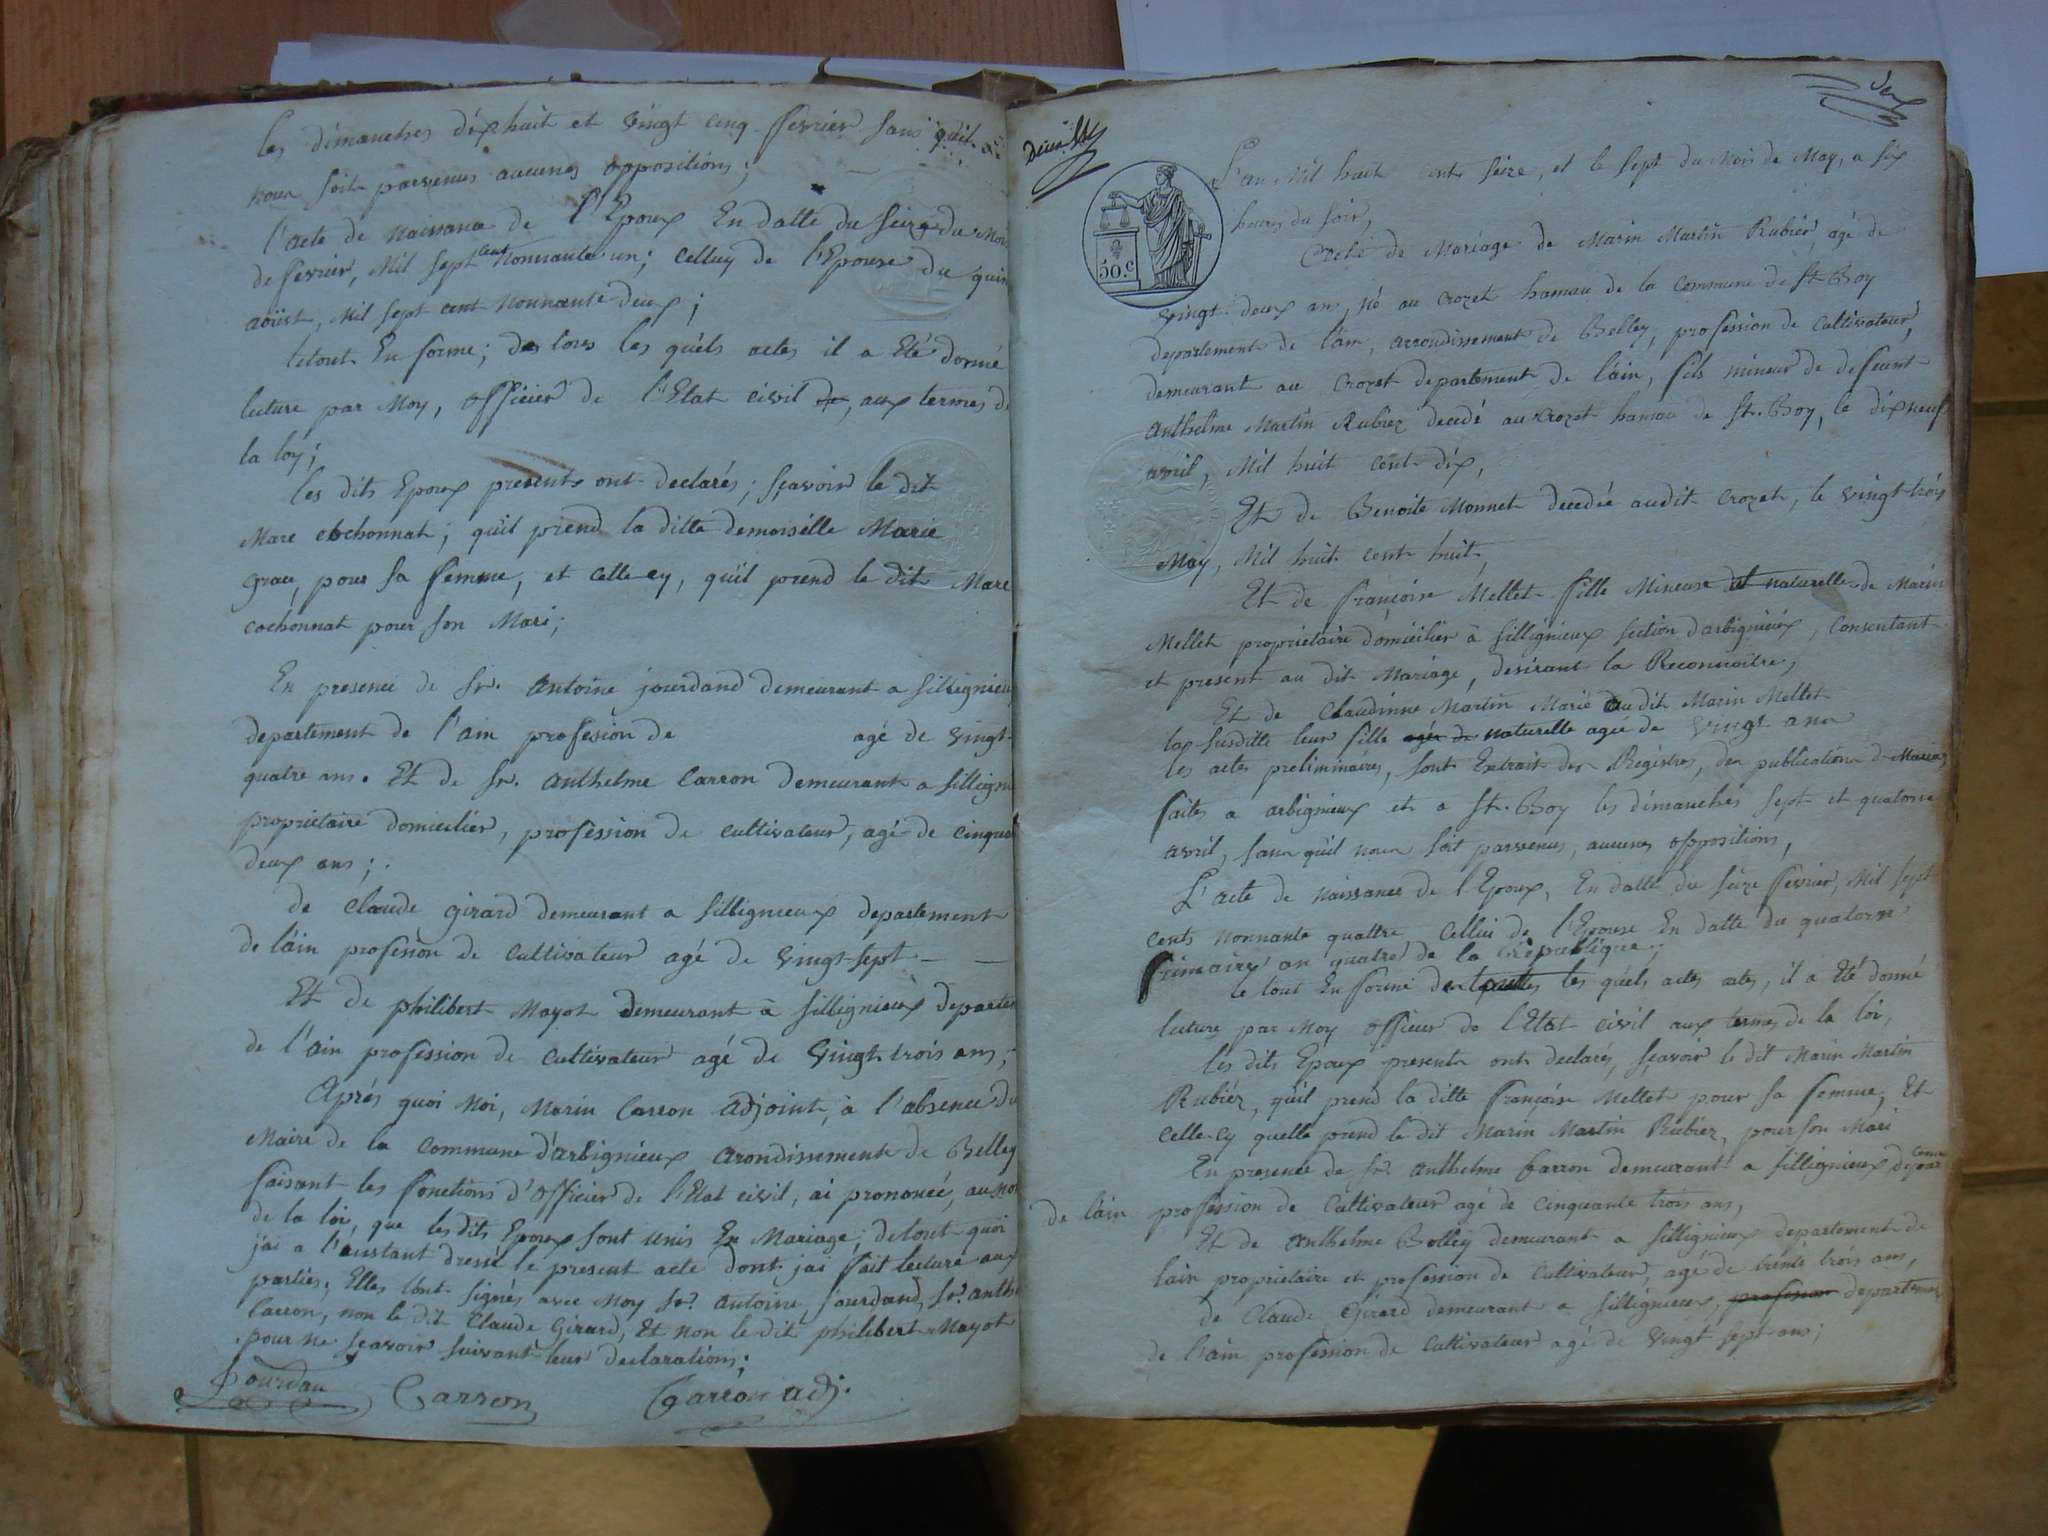 les dimanches dix huit et vingt cinq fevrier sans quil
nous soit parvenus aucunes oppositions;
l'acte de naissance de l'Epoux En datte du seize du Mois
de fevrier, Mil sept cent nonnante un; celluy de l'Epouse du quin
aoüst, Mil sept cent nonnante deux;
letout En forme; des lores les quéls actes il a été donné
lecture par Moy, officier de l'Etat civil de, aux termes de
la loy;
les dits Epoux presents ont declarés; sçavoir le dit
Marc cochonnat; quil prend la ditte demoisélle Marie
Grau, pour sa femme, et celle-cy, quil prend le dit Marc
cochonnat pour son Mari;
En presence de Sr. Antoine jourdand demeurant a Sillignieu
departement de l'ain profession de agé de vingt-
quatre ans. Et de Sr. Anthelme Carron demeurant a Silligni
propriétaire domicilier, profession de cultivateur, agé de cinqua
deux ans;
de Claude Girard demeurant a Sillignieux departement
de l'ain profession de cultivateur agé de vingt-sept -
Et de philibert Mayot demeurant à Sillignieux departe
de l'ain profession de cultivateur agé de vingt trois ans;
Aprés quoi Moi, Marin Carron Adjoint, à l'absence du
Maire de la Commune d'arbignieux arondissement de Belley
faisant les fonctions d'officier de l'Etat civil, ai prononcé, au nom
de la loi, que les dits Epoux sont unis En Mariage; de tout quoi
j'ai a l'instant dressé le present acte dont j'ai fait lecture aux
parties; Elles l'ont signés avec Moy Sr. Antoine jourdand, Sr. anthe
Carron, non le dit Claude Girard, Et non le dit philibert Mayot
pour ne sçavoir suivant leur declarations;
Jourdan Carron Carron adj.
deux
L'an Mil huit cent seize, et le sept du Mois de May, a six
50.c
heures du soir,
Acte de Mariage de Marin Martin Rubiér, agé de
vingt deux ans, né au Crozet hamau de la commune de St. Boy
departement de l'ain, arrondissement de Belley, profession de cultivateur,
demeurant au Crozet departement de l'ain, fils mineur de deffeunt
Anthelme Martin Rubiez decedé au Crozet hamau de St. Boy, le dix neuf
avril, Mil huit cent dix,
Et de Benoite Monnet decedée audit Crozet, le vingt-trois
May, Mil huit cent huit,
Et de françoise Mellet fille Mineure et naturelle de Marin
Mellet propriétaire domicilier à Sillignieux section d'arbignieux, consentant
et present au dit Mariage, desirant la Reconnoître,
Et de Claudinne Martin Marié audit Marin Mellet
la susditte leur fille agée de naturelle agée de vingt ans
les actes preliminaires, sont Extrait des Régistres, des publications de Mariag
faites a arbignieux et a St. Boy les dimanches sept et quatorse
avril, sans quil nous soit parvenus, aucunes oppositions,
L'acte de naissance de l'Epoux, En datte du seize fevrier, Mil sept
cents nonnante quattre Cellui de l'Epouse En datte du quatorse
frimaire an quatre de la république;
le tout En forme des les quéls actes actes, il a été donné
lecture par Moy officier de l'Etat civil aux termes de la loi,
les dits Epoux presents ont declarés, sçavoir le dit Marin Martin
Rubiéz, quil prend la ditte françoise Mellet pour sa femme, Et
celle-cy quelle prend le dit Marin Martin Rubiez, pour son Mari
En presence de Sr. Anthelme Carron demeurant a Sillignieux depar
de l'ain profession de cultivateur agé de cinquante trois ans,
Et de Anthelme Bolléy demeurant a Sillignieux departement de
lain propriétaire et profession de cultivateur, agé de trente trois ans,
de Claude Girard demeurant a Sillignieux, profession departement
de l'ain profession de cultivateur agé de vingt sept ans;